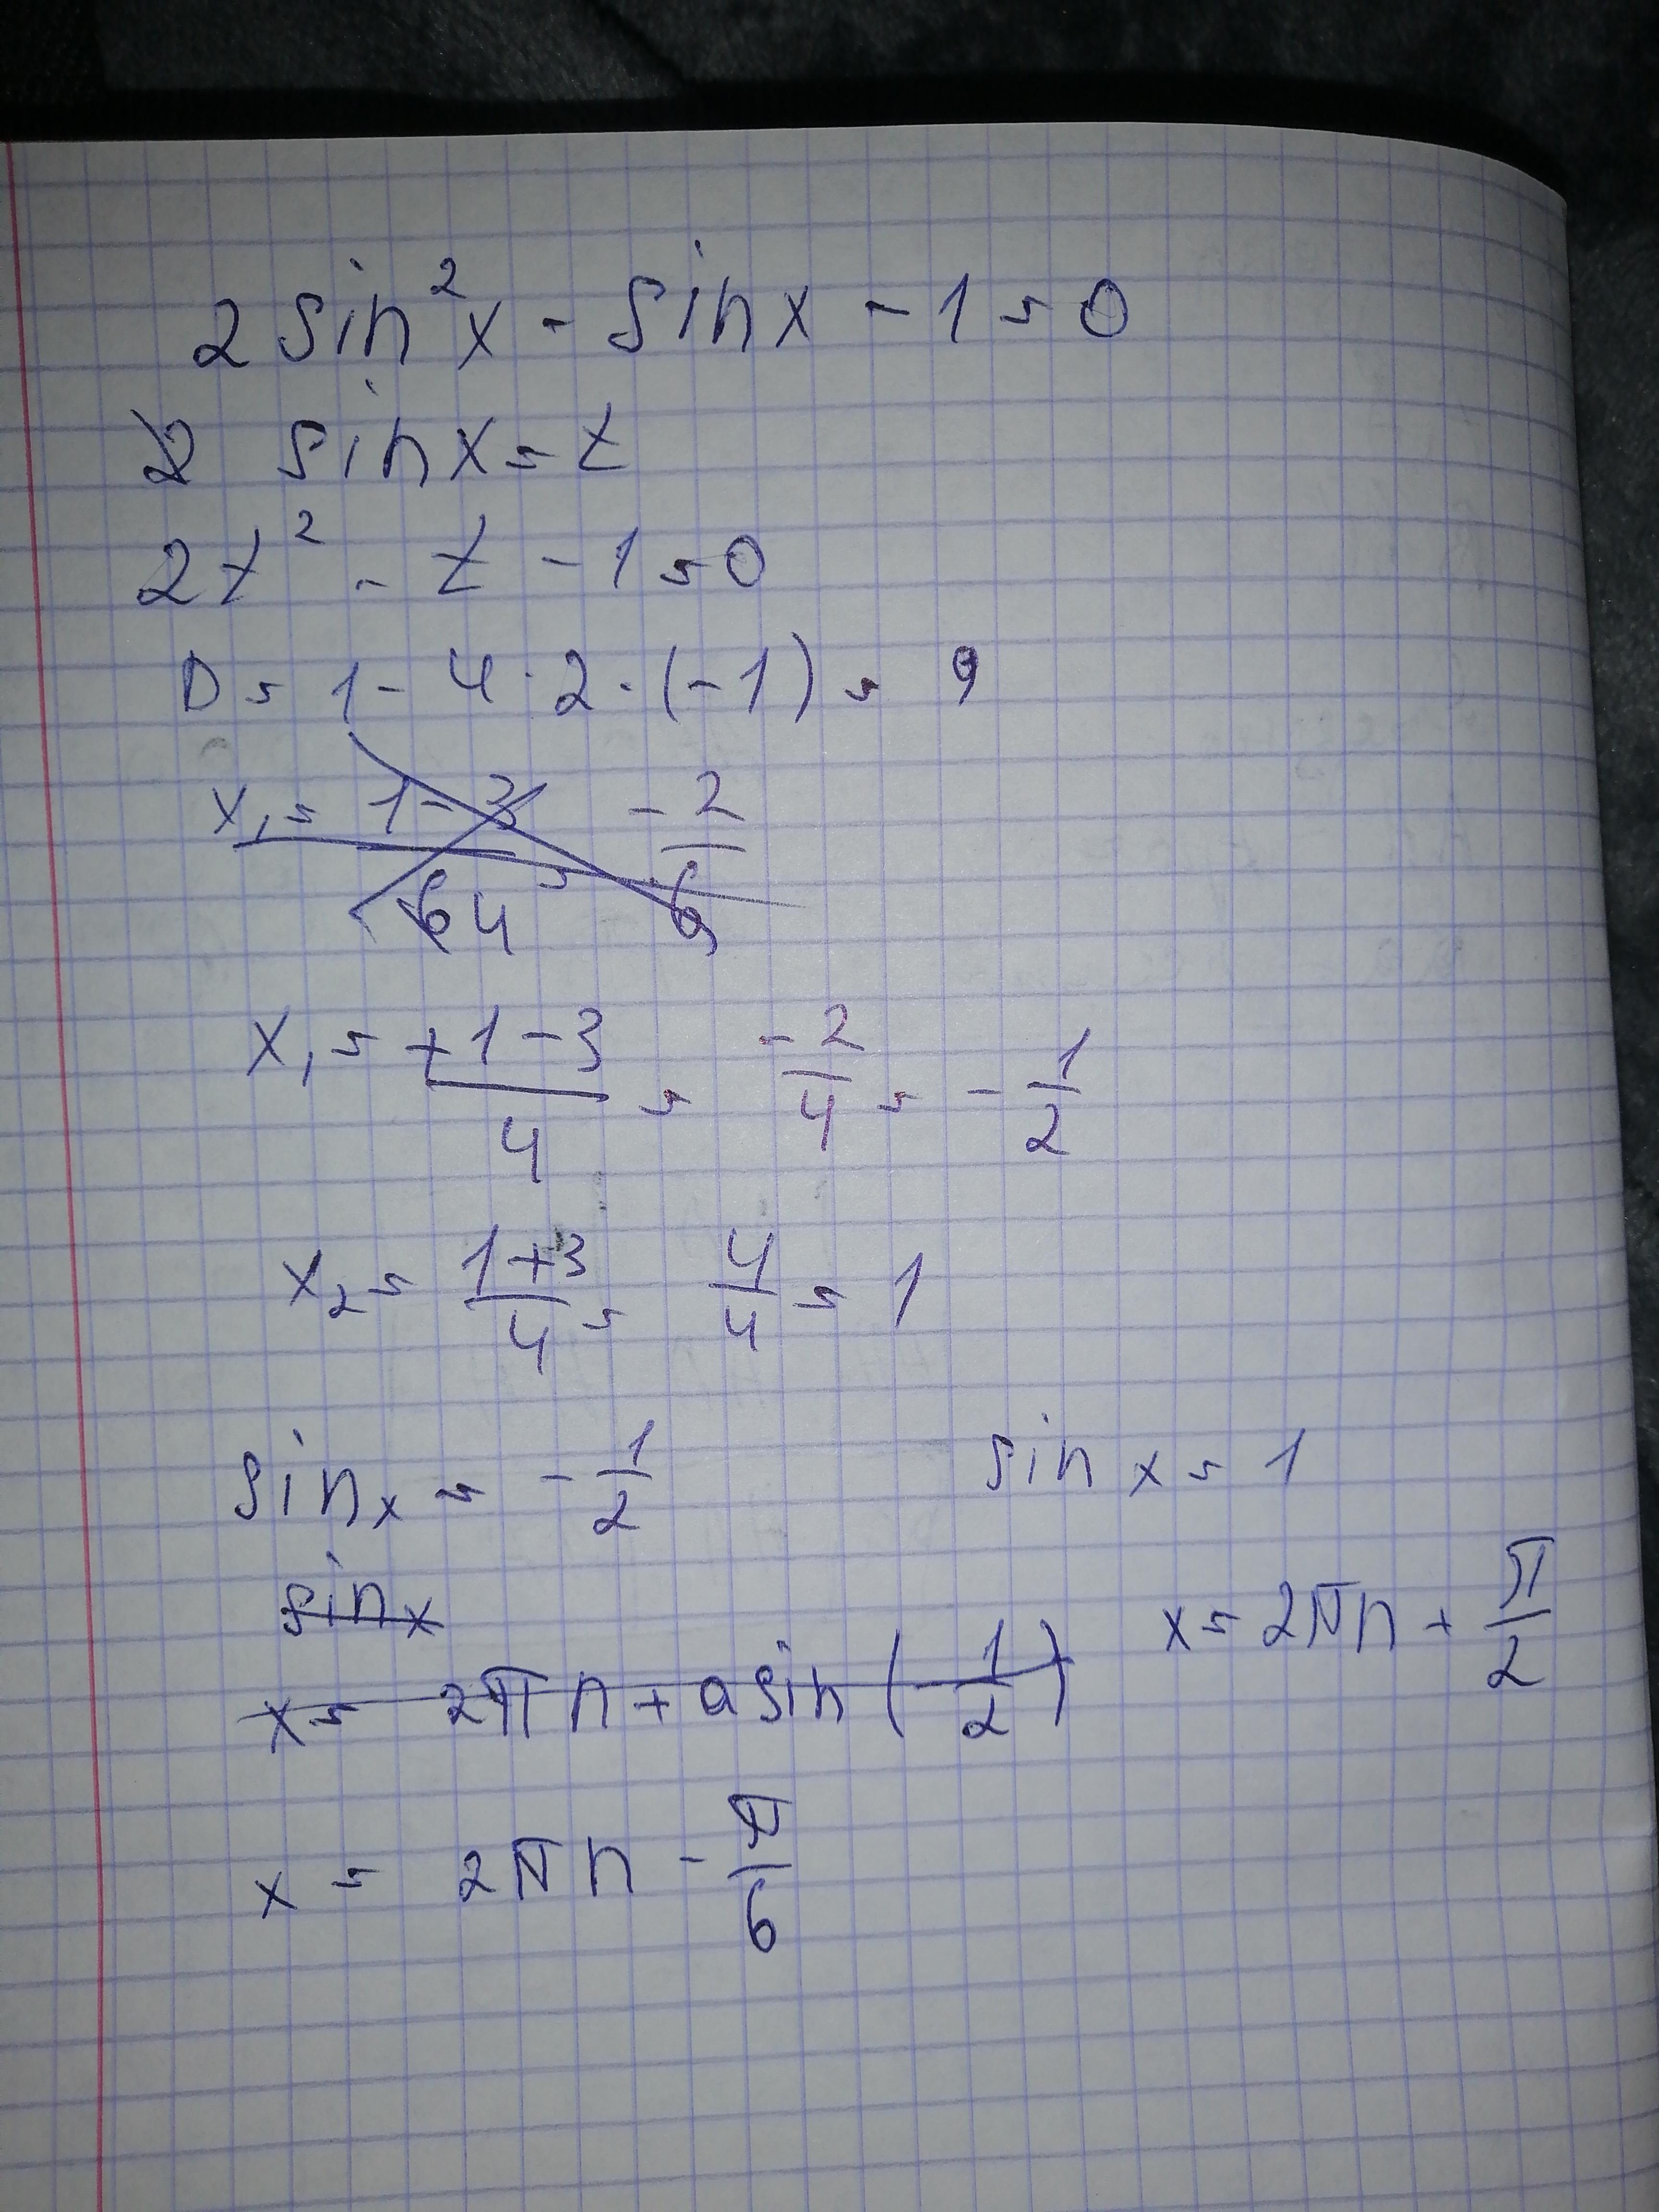 2 sin²x - sinx - 1 = 0
sinx = t
2t² - t - 1 = 0
D = 1 - 4 · 2 · (-1) = 9
x₁ = 1 - 3 / 4 = -2 / 6
x₁ = +1 - 3 / 4 = -2 / 4 = - 1 / 2
x₂ = 1 + 3 / 4 = 4 / 4 = 1
sin x = - 1 / 2 sin x = 1
sin x
x = 2πn + asin (- 1 / 2) x = 2πn + π / 2
x = 2πn - π / 6